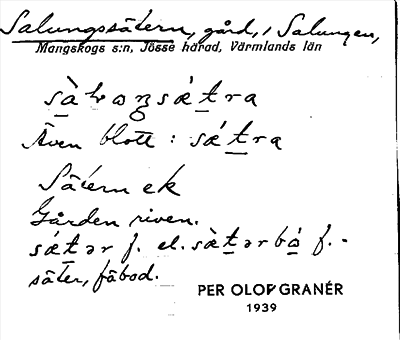 Salungssätern, gård, i Salungen,
Mangskogs s:n, Jösse härad, Värmlands län
Även blott : sǽt̲ra
Sätern ek
Gården riven.
sǽt̲ər f. el. sæ̀t̲ərbò̲ f. -
säter, fäbod.
PER OLOF GRANÉR
1939